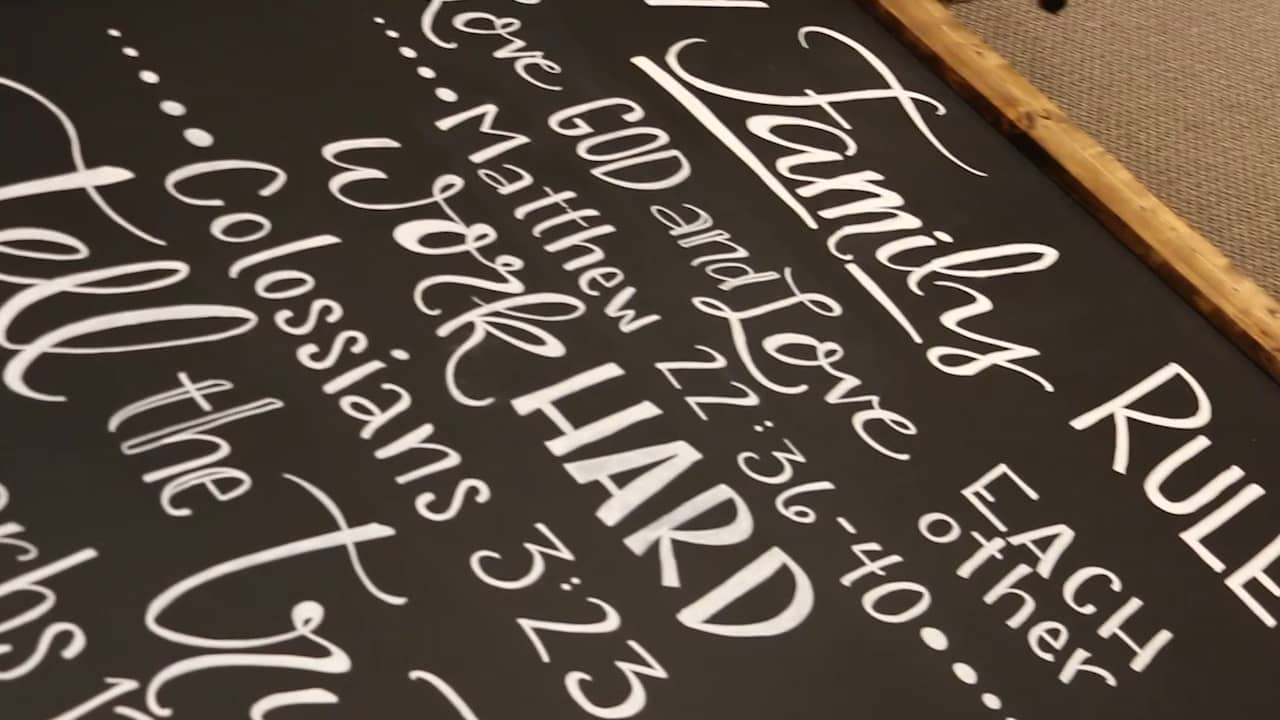 Family RULE
Love GOD and Love EACH other
Matthew 22:36-40
Work HARD
Colossians 3:23
Tell the